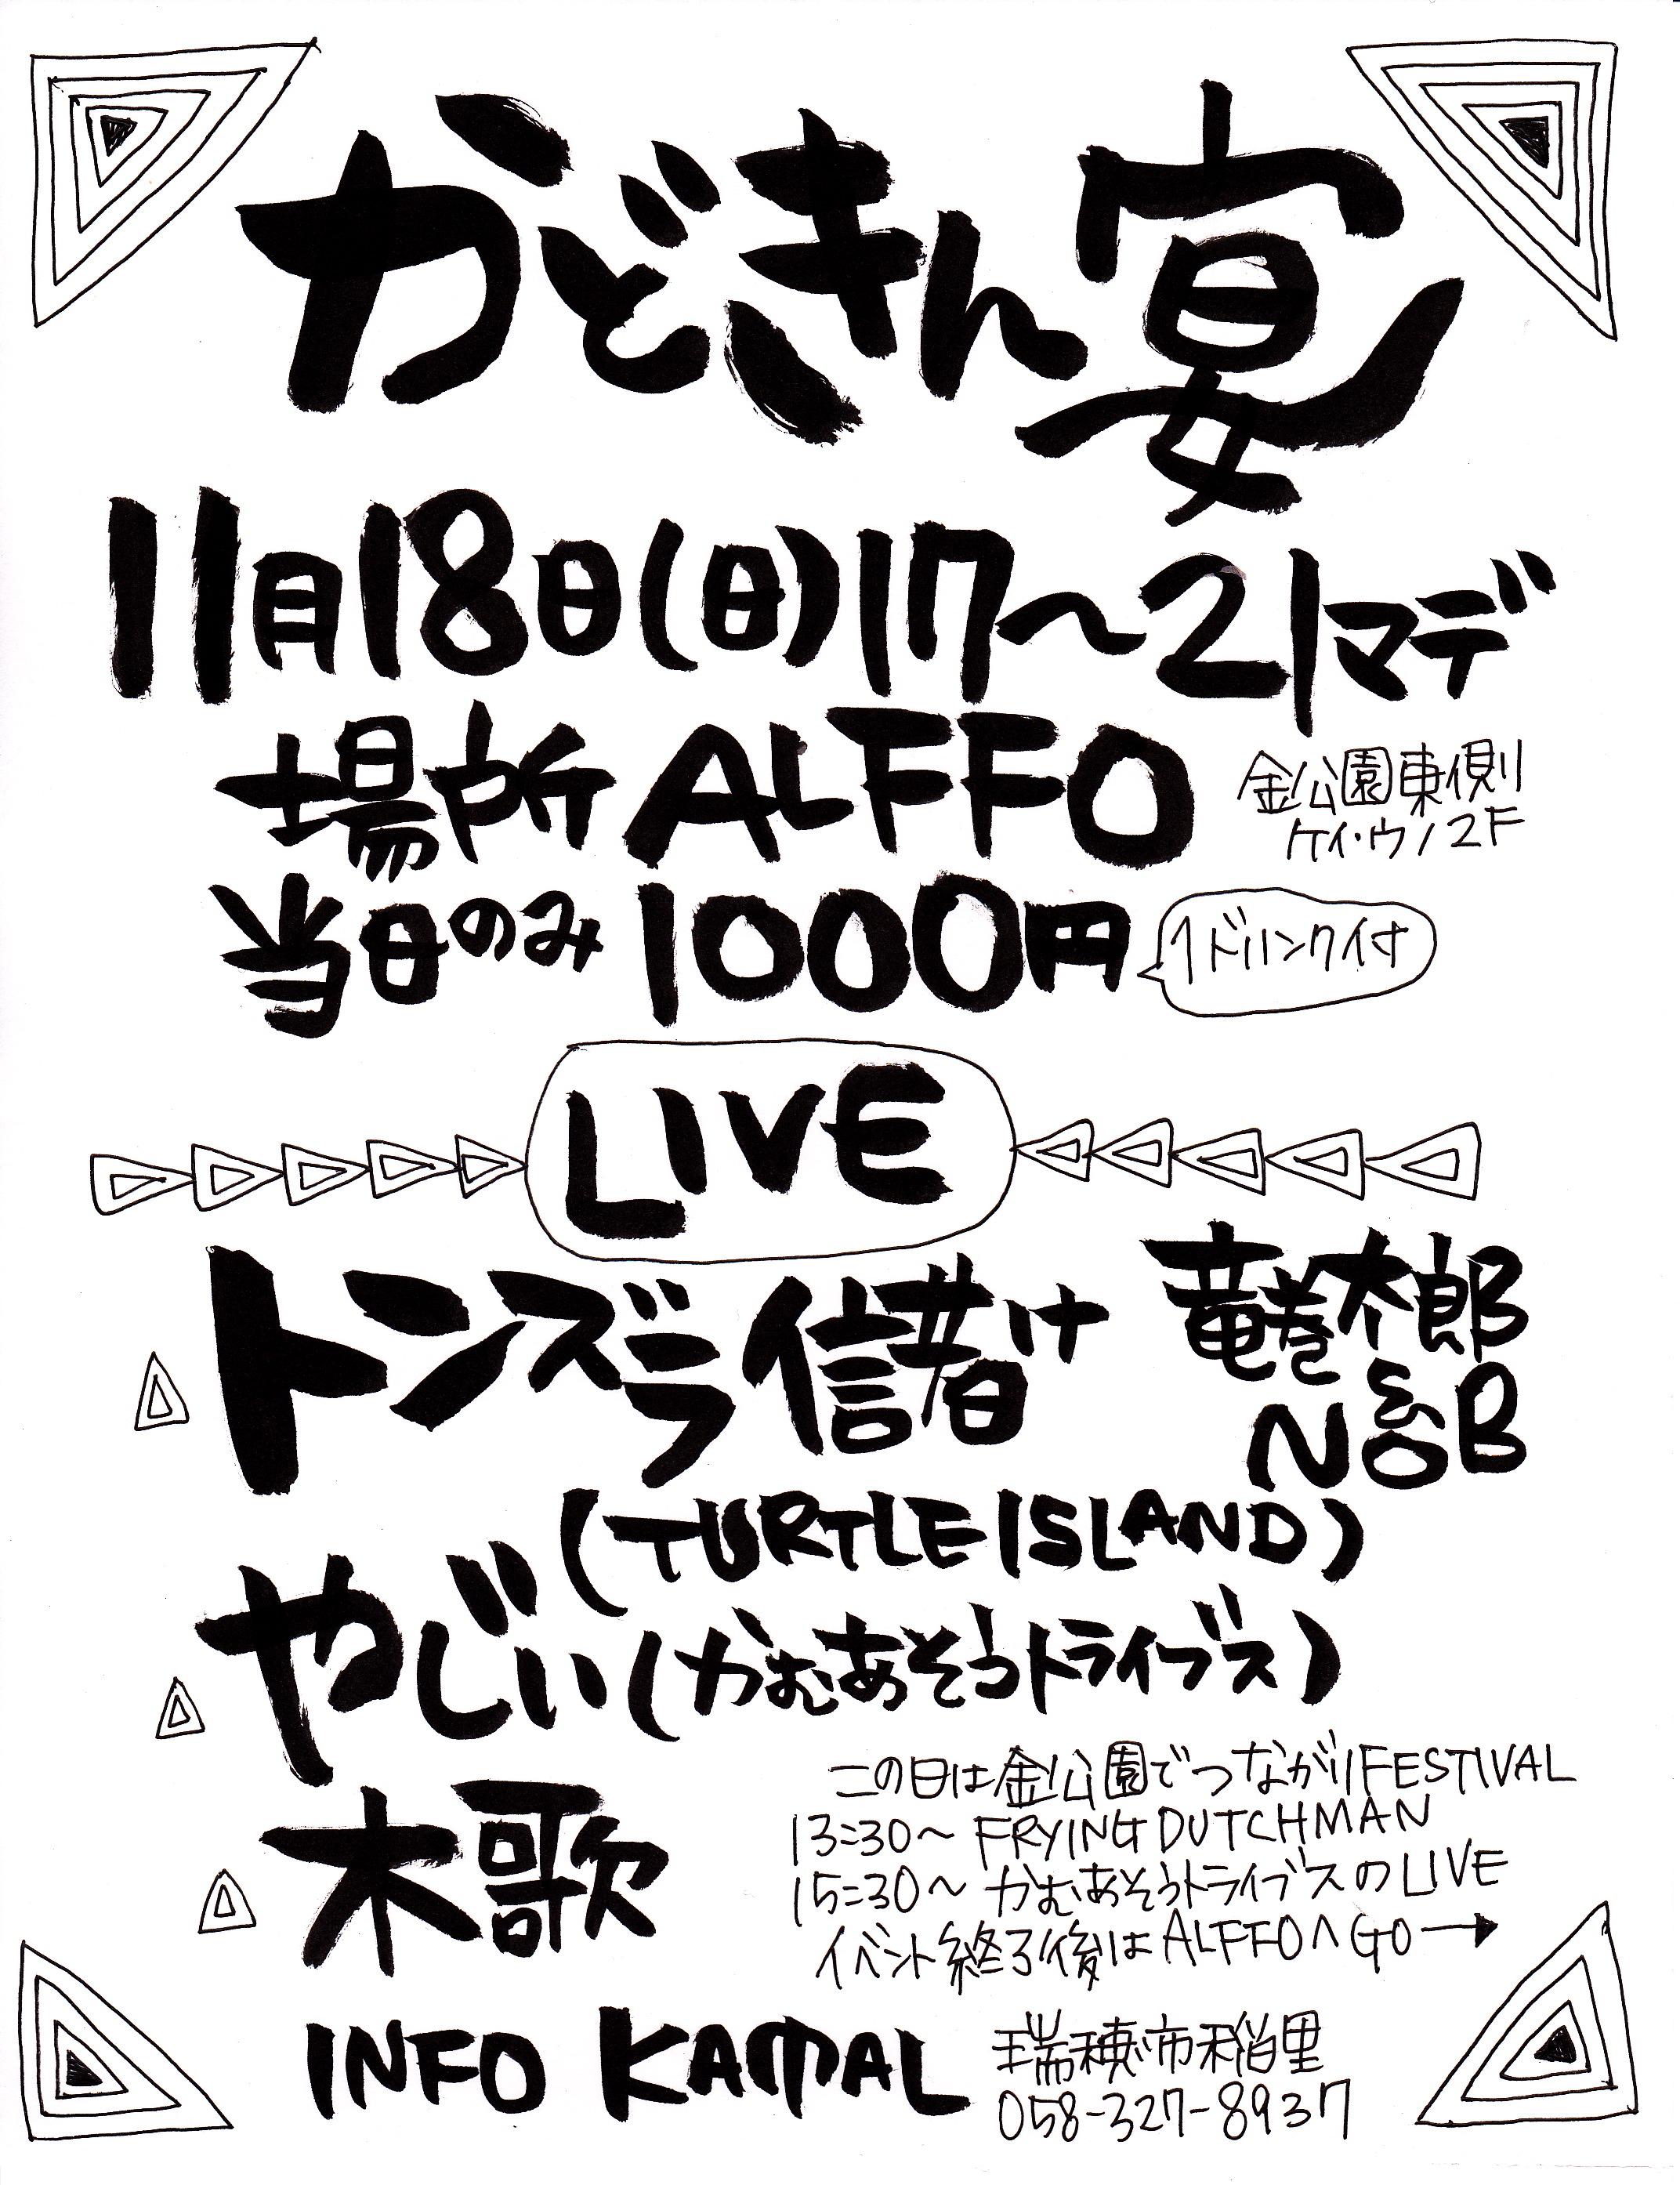 かどきん宴
11月18日(日)17〜21マデ
場所 ALFFO
金公園東側
ケイ・ウノ2F
当日のみ 1000円
1ドリンク付
LIVE
トンズラ信者ケ
竜巻太郎
&
NOB
(TURTLE ISLAND)
やじぃ(かむあそうトライブス)
木歌
この日は金公園でつながりFESTIVAL
13:30〜 FRYING DUTCHMAN
15:30〜 かむあそうトライブスのLIVE
イベント終了後はALFFOへGO→
INFO KAMAL
瑞穂市稲里
058-327-8937